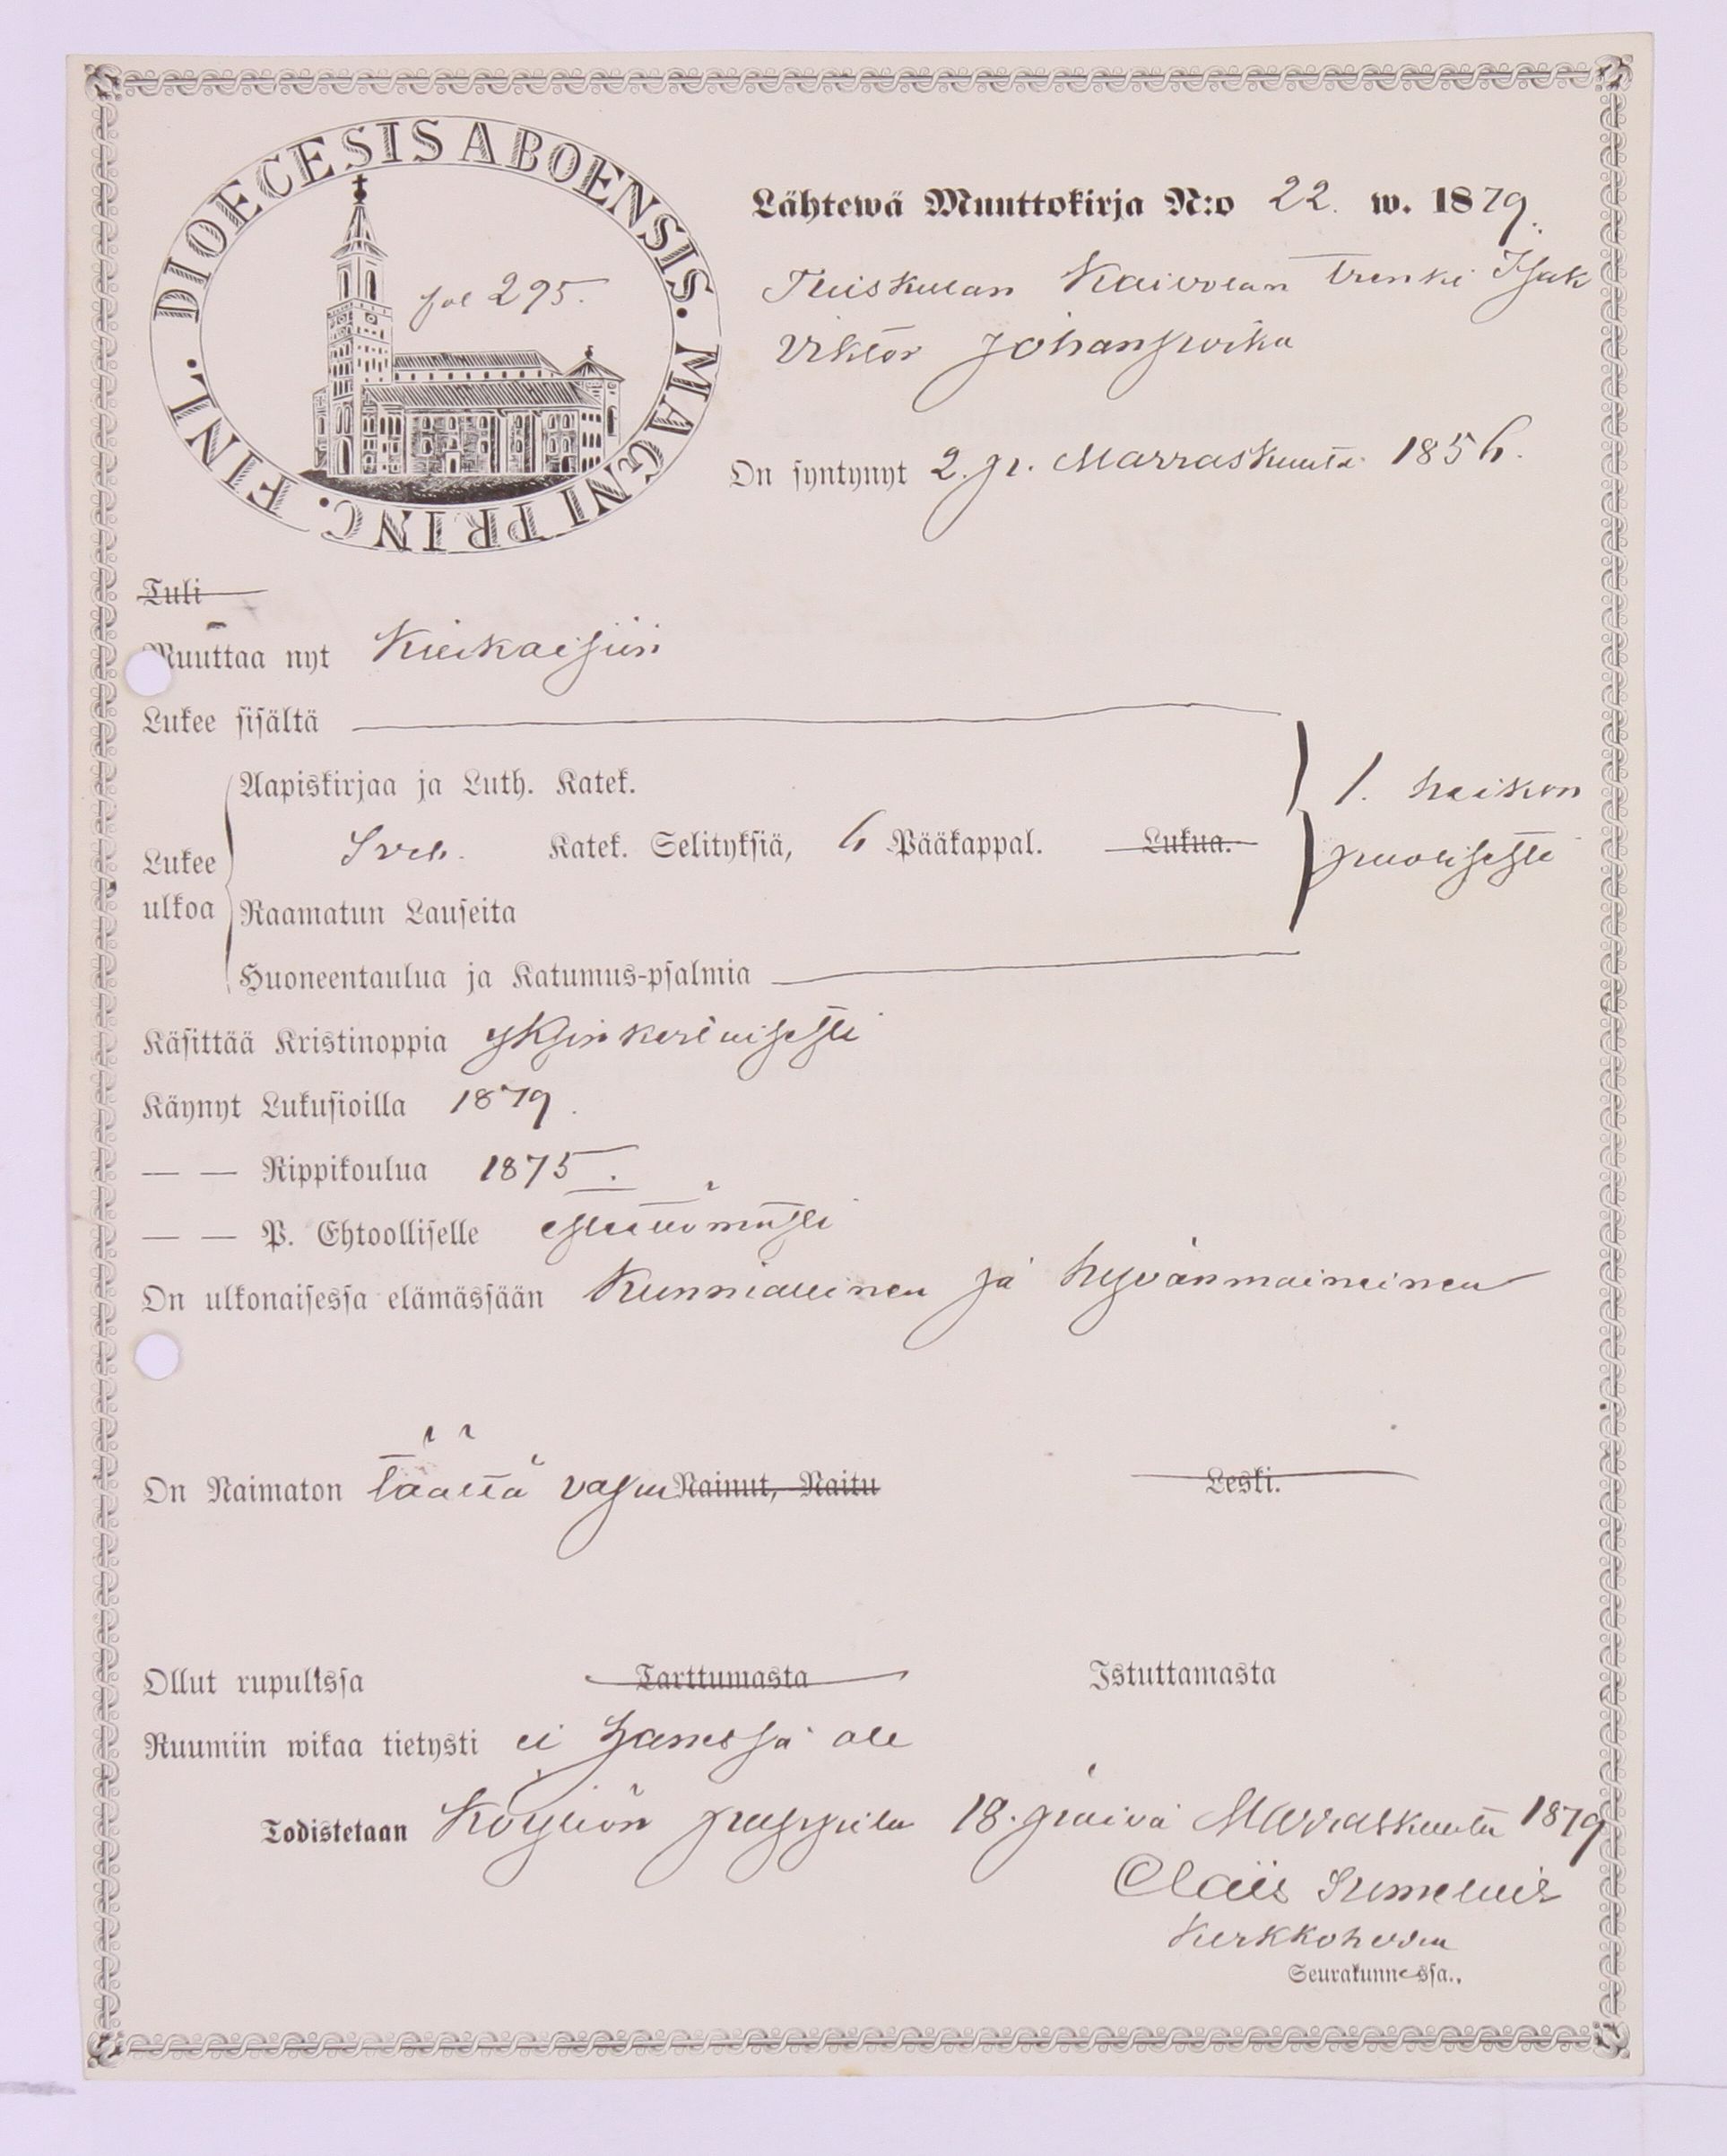 DIOECESIS ABOENSIS. MAGNI PRINC. FINL.
fol 295.
Lähtewä Muuttokirja N:o 22. w. 1879.
Tuiskulan Kaivolan trenki Isak
Viktor Johanpoika
On syntynyt 2. p. Marraskuuta 1856.
Tuli
Muuttaa nyt Kiukaisiin
Lukee sisältä
Lukee ulkoa
Aapiskirjaa ja Luth. Katek.
Sveb. Katek. Selityksiä, 6 Pääkappal. Lukua.
Raamatun Lauseita
Huoneentaulua ja Katumus-psalmia
1. heikon
puolisesti
Käsittää Kristinoppia yksinkertaisesti
Käynyt Lukusioilla 1879.
— — Rippikoulua 1875.
— — P. Ehtoolliselle esteettömästi
On ulkonaisessa elämässään Kunniallinen ja hyvänmaineinen
On Naimaton täältä vapa Nainut, Naitu Leski.
Ollut rupulissa Tarttumasta Istuttamasta
Ruumiin wikaa tietysti ei hänessä ole
Todistetaan Köyliön pappila 18. päivä Marraskuuta 1879
Claës
Kirkkoherra
Seurakunnessa.,